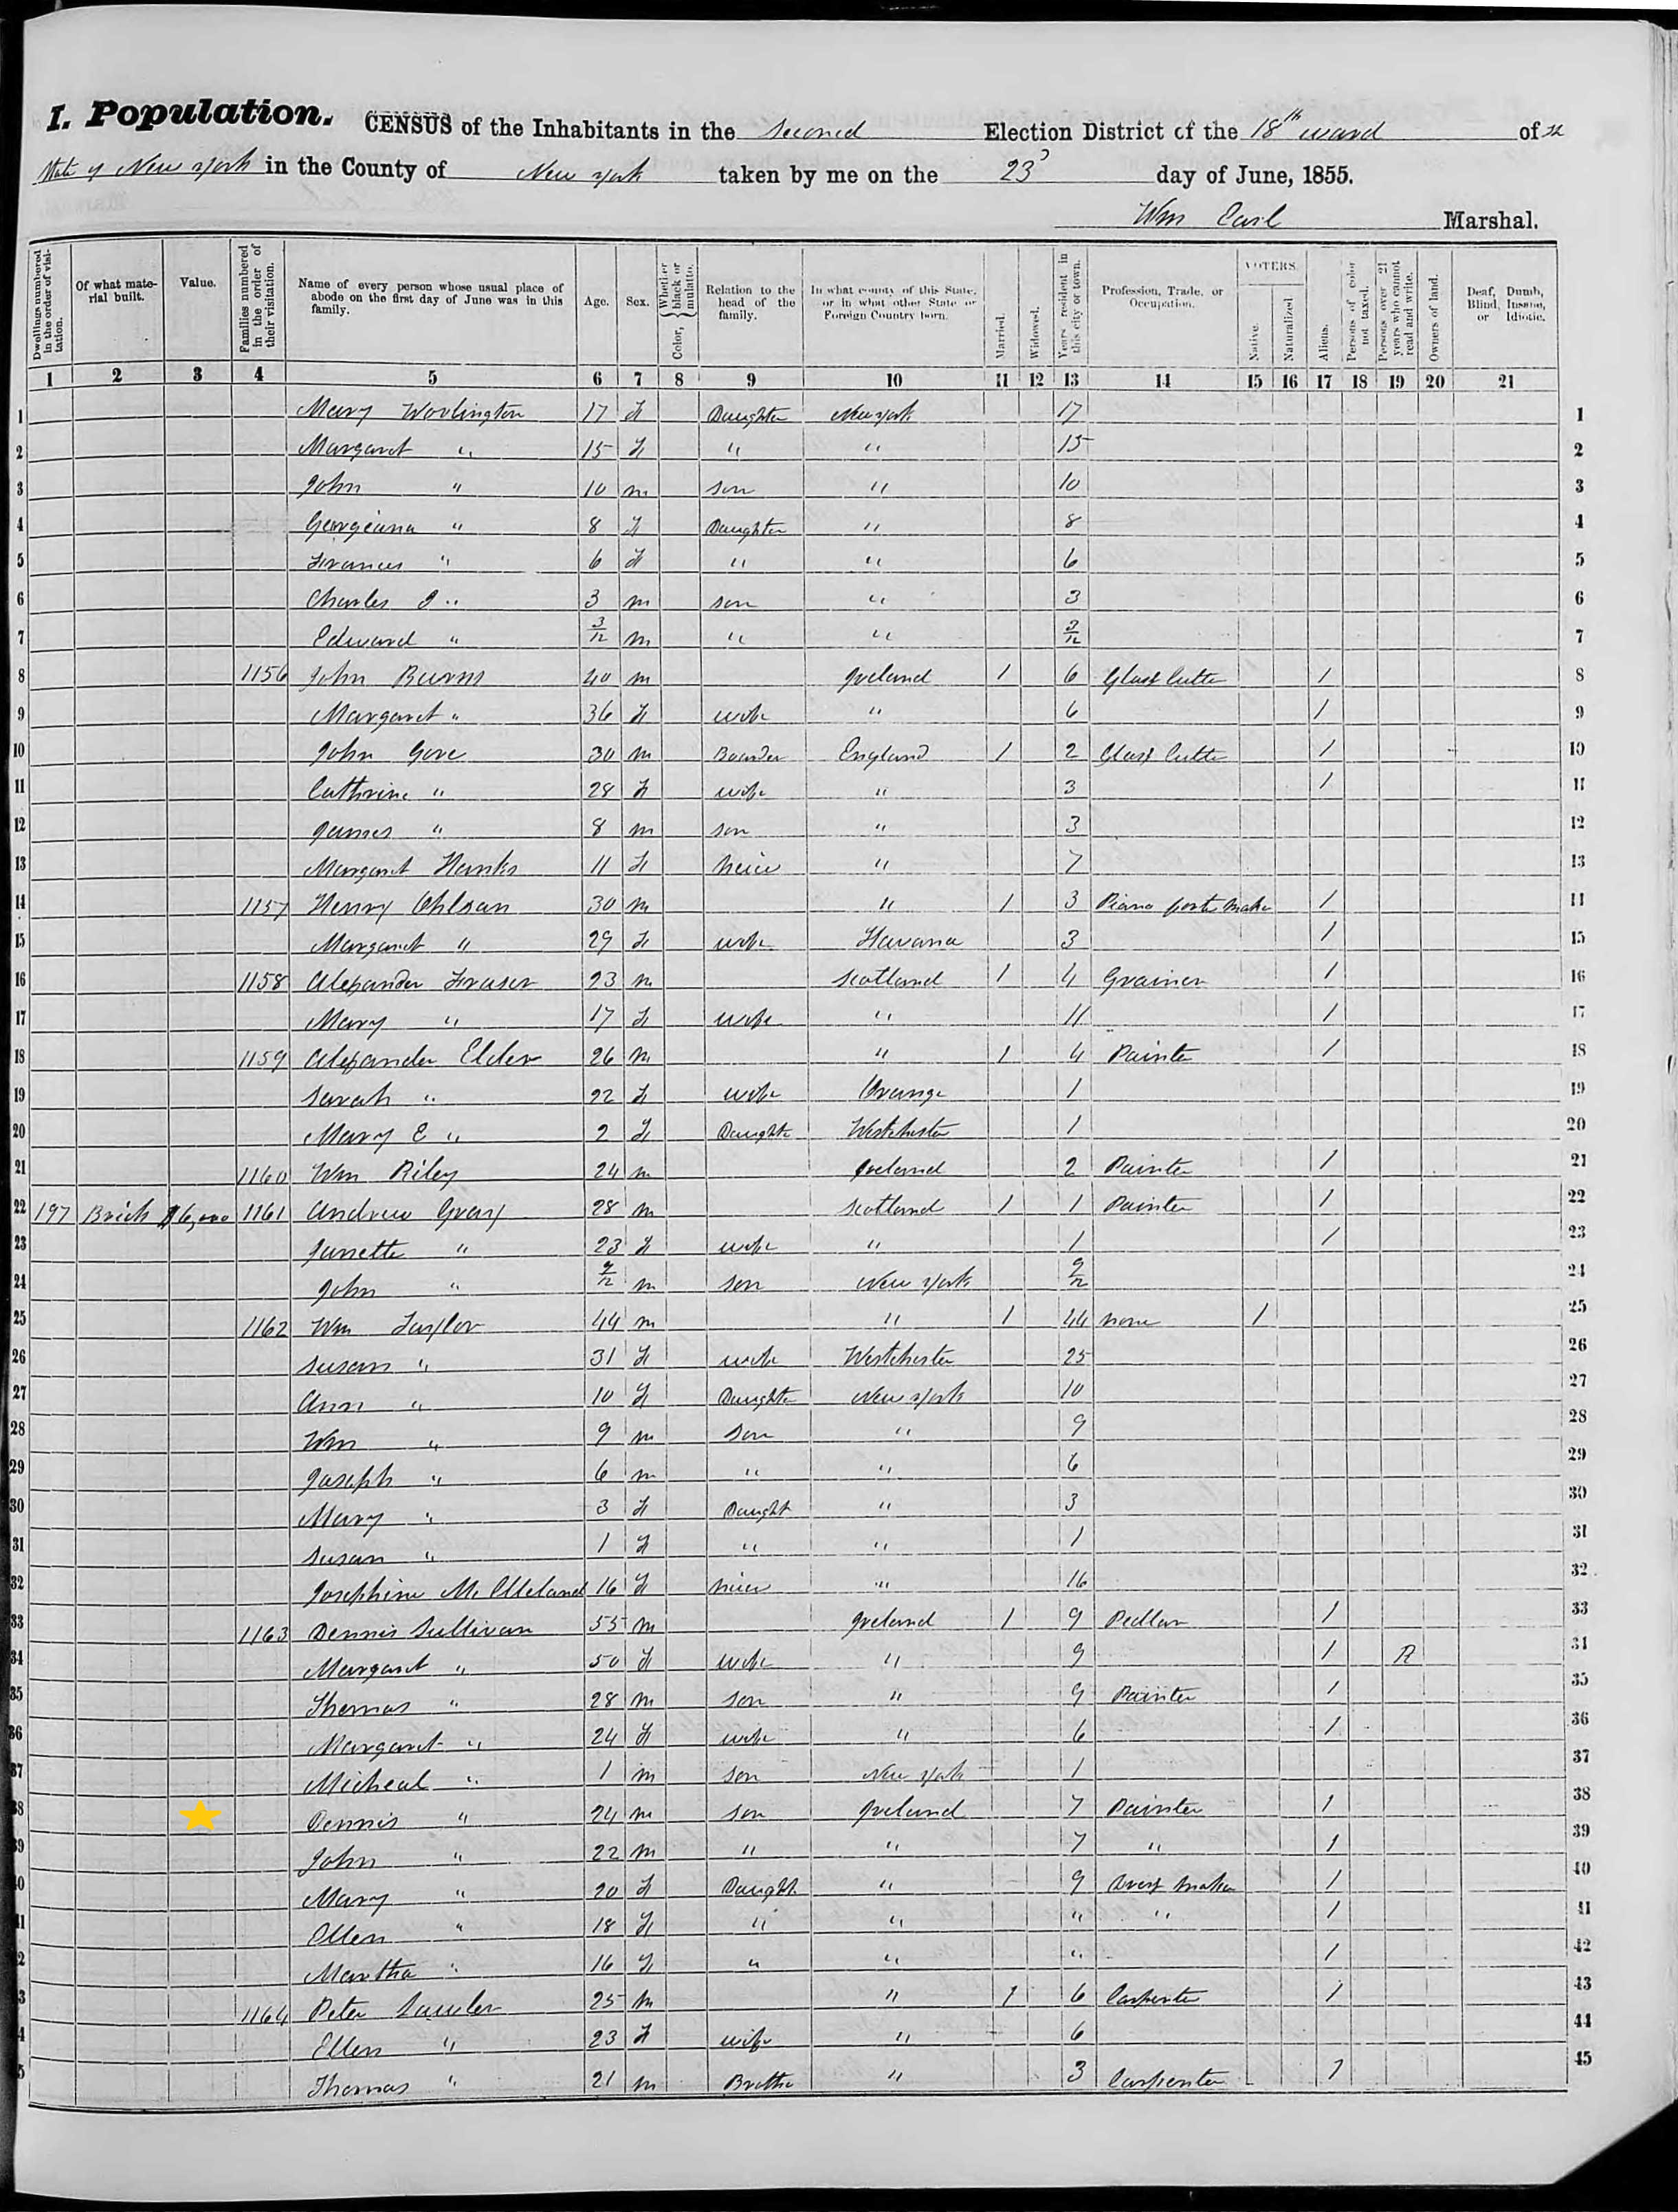 I. Population. CENSUS of the Inhabitants in the second Election District of the 18th ward of
State of New York in the County of New York taken by me on the 23 day of June, 1855.
Wm Earl Marshal.
Dwellings numbered in the order of visitation. Of what material built. Value. Families numbered in the order of their visitation. Name of every person whose usual place of abode on the first day of June was in this family. Age. Sex. Color, Whether black or mulatto. Relation to the head of the family. In what county of this State, or in what other State or Foreign Country born. Married. Widowed. Years resident in this city or town. Profession, Trade, or Occupation. VOTERS. Native. Naturalized. Aliens. Persons of color not taxed. Persons over 21 years who cannot read and write. Owners of land. Deaf, Dumb, Blind, Insane, or Idiotic.
1 2 3 4 5 6 7 8 9 10 11 12 13 14 15 16 17 18 19 20 21
1 Mary 17 F Daughter New york 17 1
2 Margaret " 15 F " " 15 2
3 John " 10 m son " 10 3
4 Georgeana " 8 F Daughter " 8 4
5 Frances " 6 F " " 6 5
6 Charles J " 3 m son " 3 6
7 Edward " 3/12 m " " 3/12 7
8 1156 John Burns 40 m Ireland 1 6 Glass Cutter 1 8
9 Margaret " 36 F wife " 6 1 9
10 John Gove 30 m Boarder England 1 2 Glass Cutter 1 10
11 Cathrine " 28 F wife " 3 1 11
12 James " 8 m son " 3 12
13 Margaret Hanks 11 F neice " 7 13
14 1157 Henry 30 m " 1 3 Piano forte maker 1 14
15 Margaret " 29 F wife Havana 3 1 15
16 1158 Alexander Fraser 23 m Scotland 1 4 Grainer 1 16
17 Mary " 17 F wife " 11 1 17
18 1159 Alexander Elder 26 m " 1 4 Painter 1 18
19 Sarah " 22 F wife Orange 1 19
20 Mary E " 2 F Daughte Westchester 1 20
21 1160 Wm Riley 24 m Ireland 2 Painter 1 21
22 197 Brick $6,000 1161 Andrew Gray 28 m Scotland 1 1 Painter 1 22
23 Janette " 23 F wife " 1 1 23
24 John " 9/12 m son New York 9/12 24
25 1162 Wm Taylor 44 m " 1 44 none 1 25
26 Susan " 31 F wife Westchester 25 26
27 Ann " 10 F Daughter New York 10 27
28 Wm " 9 m Son " 9 28
29 Joseph " 6 m " " 6 29
30 Mary " 3 F Daught " 3 30
31 Susan " 1 F " " 1 31
32 Josephine McClleland 16 F niece " 16 32
33 1163 Dennis Sullivan 55 m Ireland 1 9 Pedlar 1 33
34 Margaret " 50 F wife " 9 1 R 34
35 Thomas " 28 m son " 9 Painter 1 35
36 Margaret " 24 F wife " 6 1 36
37 Micheal " 1 m son New York 1 37
38 Dennis " 24 m son Ireland 7 Painter 1 38
39 John " 22 m " " 7 " 1 39
40 Mary " 20 F Daught " 9 Dress maker 1 40
41 Ellen " 18 F " " " " 1 41
42 Martha " 16 F " " " 1 42
43 1164 Peter Lawler 25 m " 1 6 Carpenter 1 43
44 Ellen " 23 F wife " 6 44
45 Thomas " 21 m Brother " 3 Carpenter 1 45